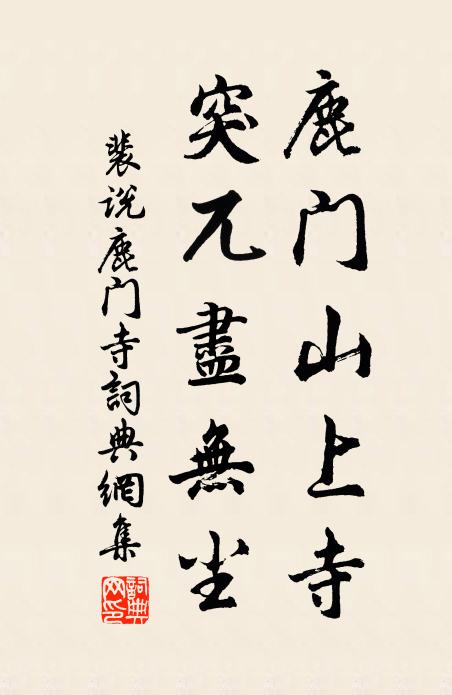 鹿门山上寺
突兀盡無尘
裴说鹿门寺詞典網集
詞典网印